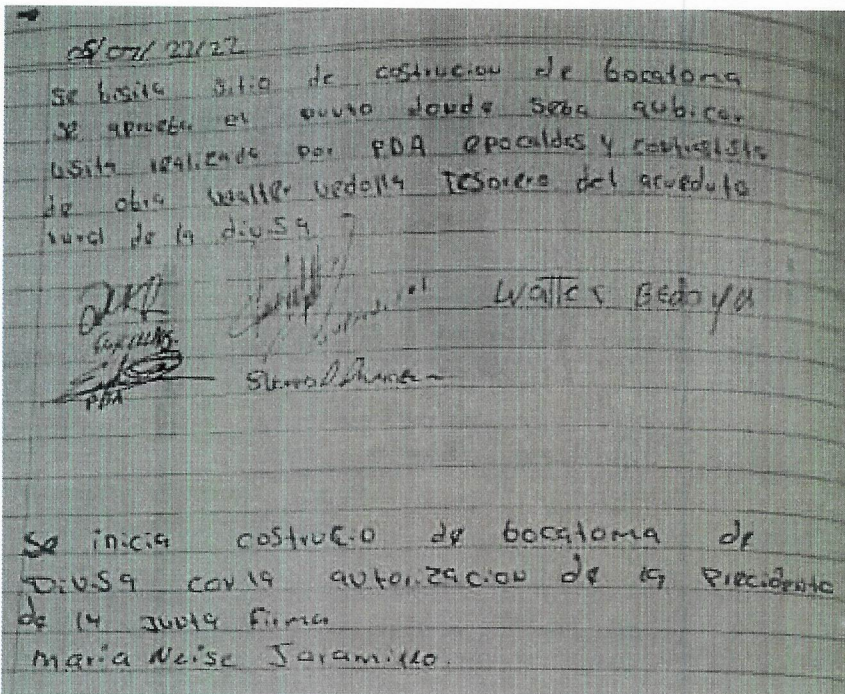 05/07/22/22
se bisita sitio de costrucion de bocatoma
se aprueba el punto donde seba aubicar
bisita realizada por PDA epocaldas y contratista
de obra Walter vedolla Tesorero del acueduto
rural de la divisa
Walter Bedoya
PDA
Se inicia costrucio de bocatoma de
Divisa con la autorizacion de la Precidente
de la Junta Firma
maria Neise Jaramillo.